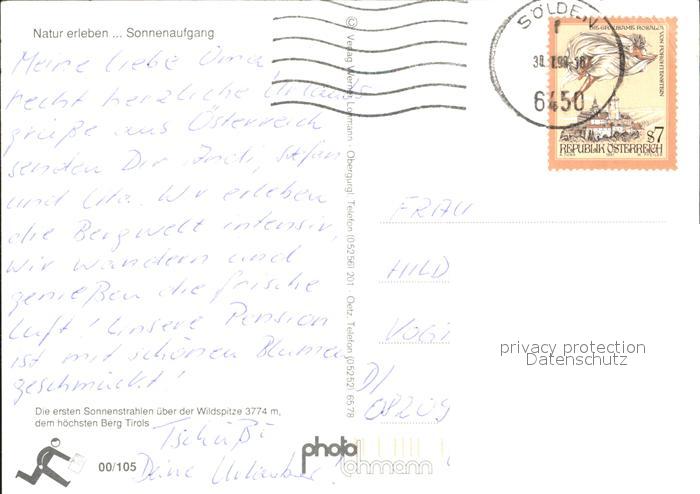 Natur erleben ... Sonnenaufgang
Meine liebe Oma
recht herzliche Urlaubs
grüße aus Österreich
senden Dir Andi, Stefan
und Uta. Wir erleben
die Bergwelt intensiv,
wir wandern und
genießen die frische
Luft! Unsere Pension
ist mit schönen Blumen
geschmückt!
Die ersten Sonnenstrahlen über der Wildspitze 3774 m,
dem höchsten Berg Tirols
Tschüßi
Deine Urlauber!
00/105
photo
lohmann
© Verlag Werner Lohmann · Obergurgl, Telefon (05256) 201 · Oetz, Telefon (05252) 6578
SÖLDEN
6450
DIE GRAUSAME ROSALIA
VON PÖRTSCHENSTEIN
S7
REPUBLIK ÖSTERREICH
FRAU
HILD
VOGT
D/
08209
privacy protection
Datenschutz